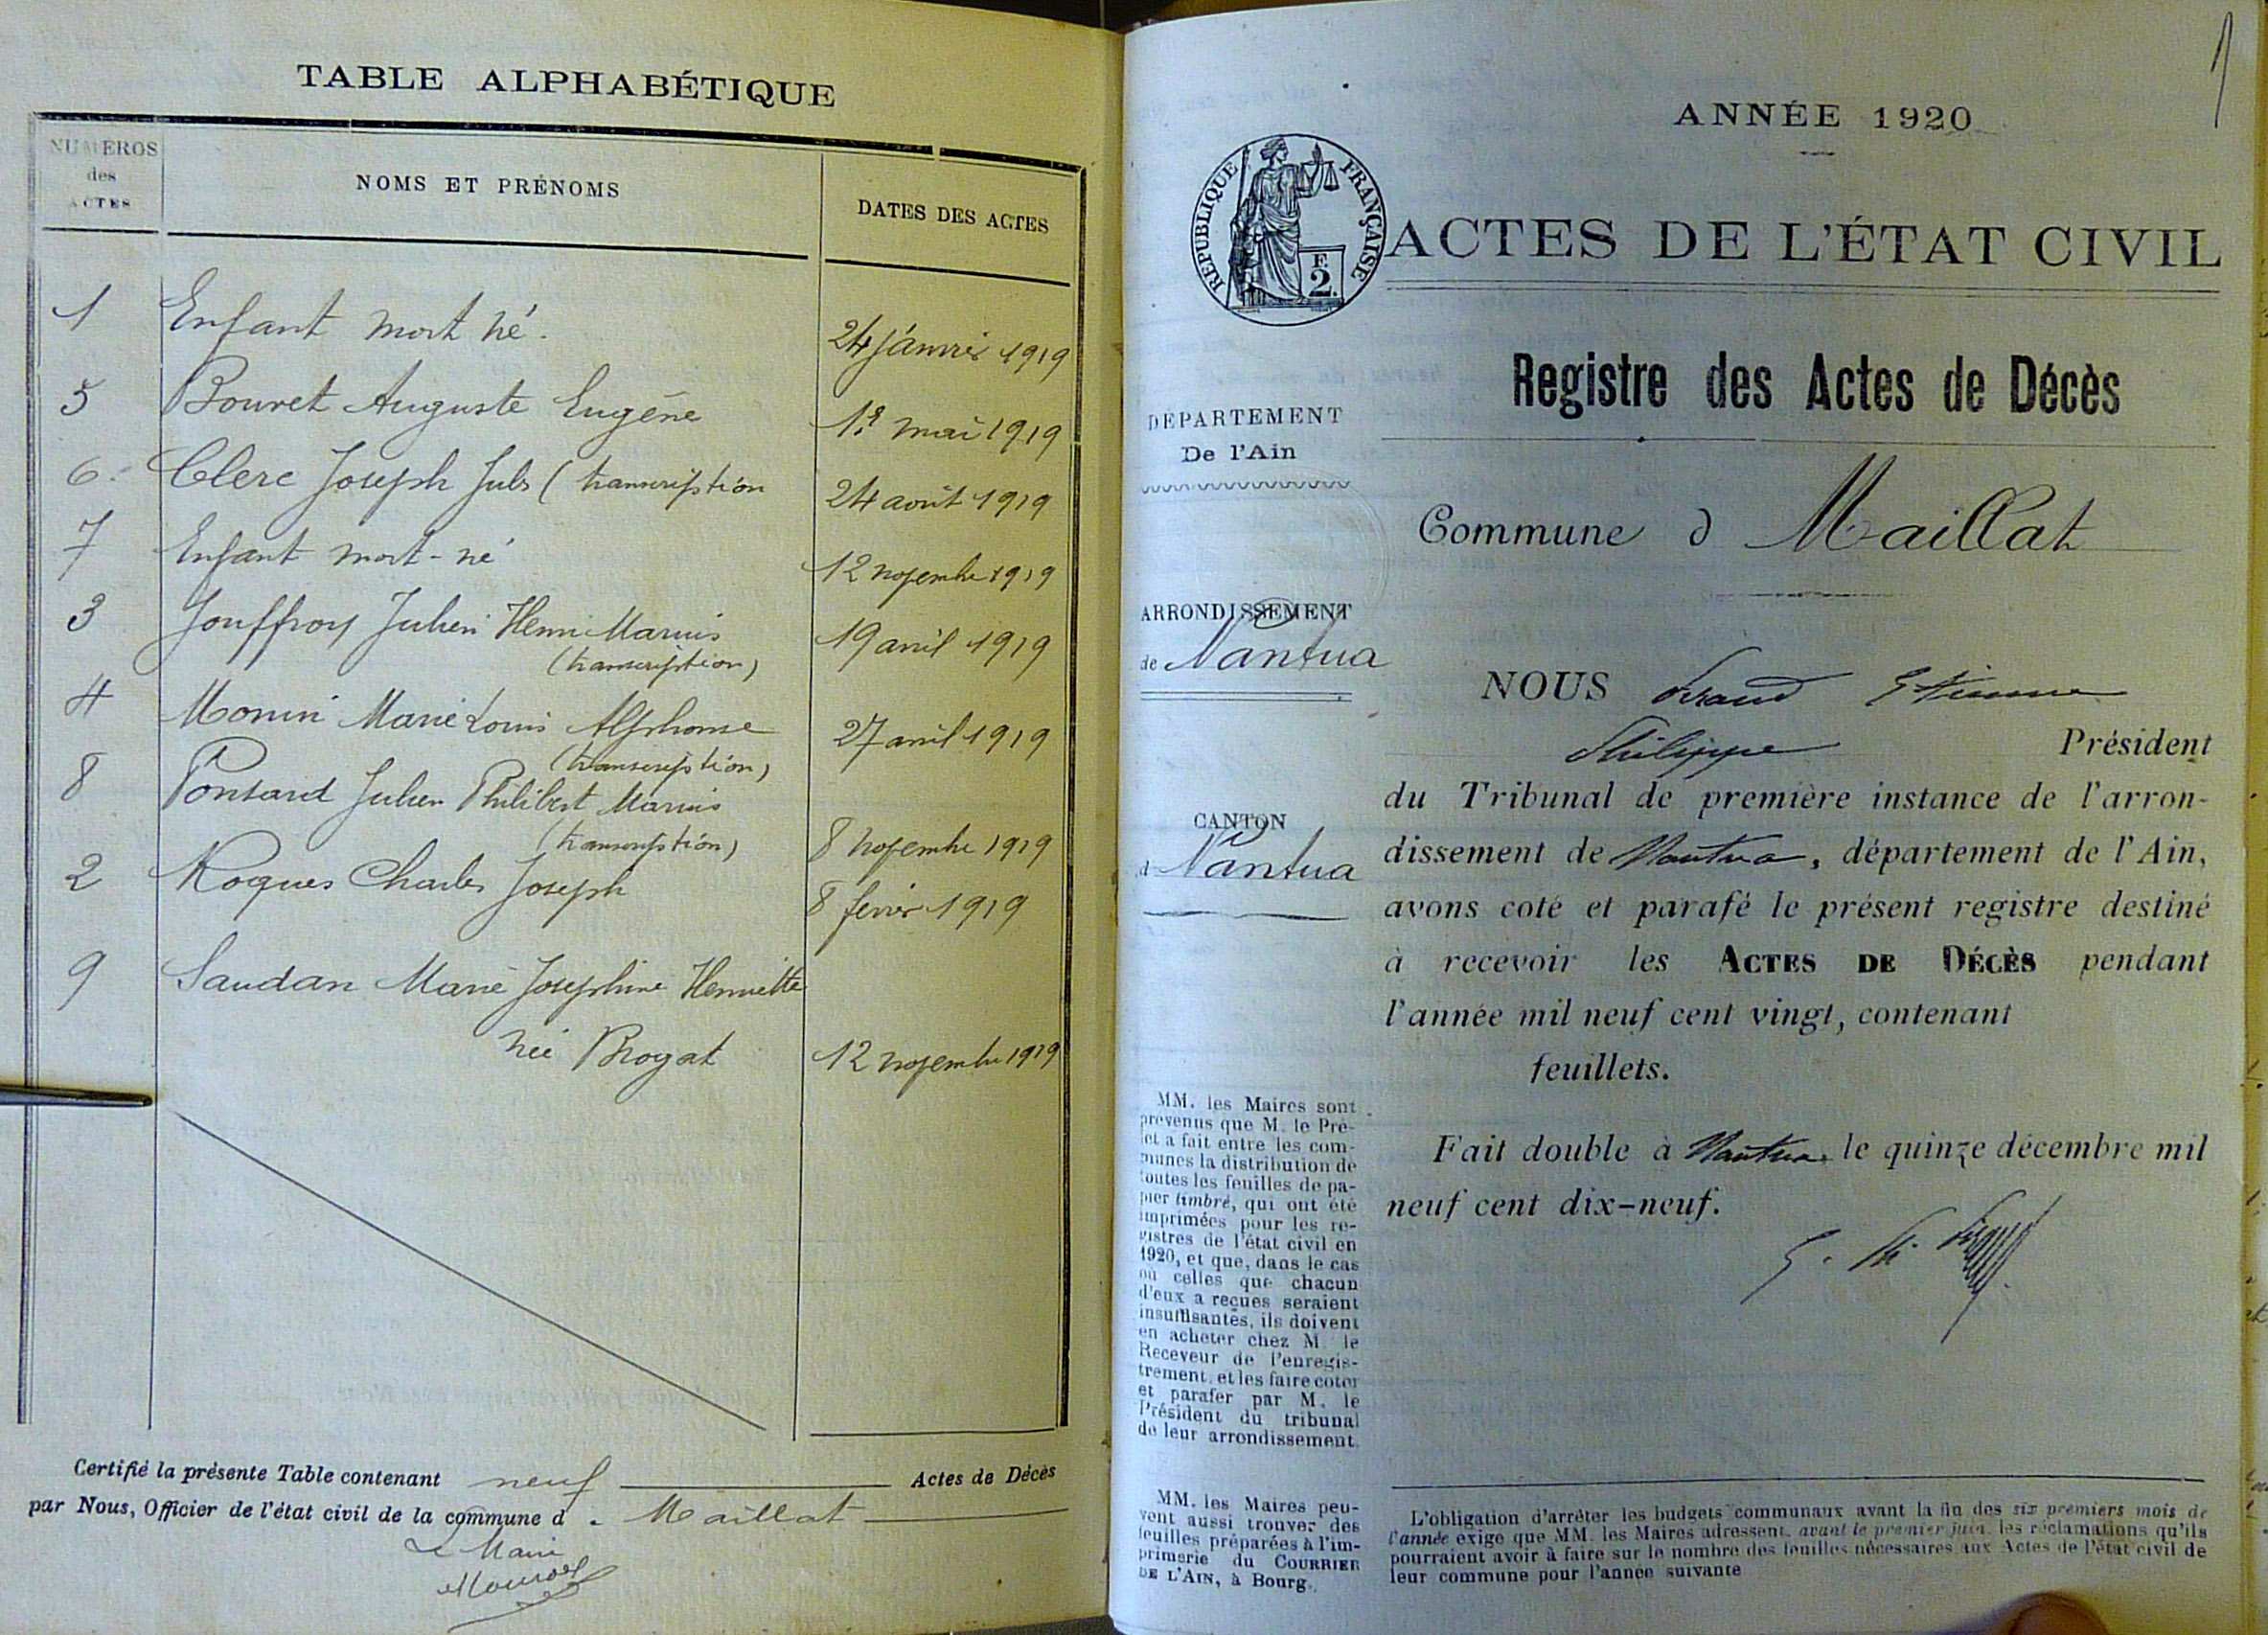 TABLE ALPHABÉTIQUE
NUMEROS
des
ACTES
NOMS ET PRÉNOMS
DATES DES ACTES
1 Enfant mort né. 24 janvier 1919
5 Bouvet Auguste Eugène 1er mai 1919
6 Clerc Joseph Jules (transcription 24 août 1919
7 Enfant mort-né 12 novembre 1919
3 Jouffroy Julien Henri Marius 19 avril 1919
(transcription)
4 Monin Marie Louis Alphonse 27 avril 1919
(transcription)
8 Ponsard Julien Philibert Marius
(transcription) 8 novembre 1919
2 Roques Charles Joseph 8 février 1919
9 Saudan Marie Joséphine Henriette
née Brogat 12 novembre 1919
Certifié la présente Table contenant neuf Actes de Décès
par Nous, Officier de l'état civil de la commune d Maillat
Le Maire
1
ANNÉE 1920
RÉPUBLIQUE FRANÇAISE
F.
2.
ACTES DE L'ÉTAT CIVIL
Registre des Actes de Décès
DÉPARTEMENT
De l'Ain
Commune d Maillat
ARRONDISSEMENT
de Nantua
CANTON
d Nantua
NOUS Etienne
Philippe Président
du Tribunal de première instance de l'arron-
dissement de Nantua, département de l'Ain,
avons coté et parafé le présent registre destiné
à recevoir les ACTES DE DÉCÈS pendant
l'année mil neuf cent vingt, contenant
feuillets.
Fait double à Nantua le quinze décembre mil
neuf cent dix-neuf.
MM. les Maires sont
prévenus que M. le Pré-
fet a fait entre les com-
munes la distribution de
toutes les feuilles de pa-
pier timbré, qui ont été
imprimées pour les re-
gistres de l'état civil en
1920, et que, dans le cas
où celles que chacun
d'eux a reçues seraient
insuffisantes, ils doivent
en acheter chez M. le
Receveur de l'enregis-
trement, et les faire coter
et parafer par M. le
Président du tribunal
de leur arrondissement.
MM. les Maires peu-
vent aussi trouver des
feuilles préparées à l'im-
primerie du COURRIER
DE L'AIN, à Bourg.
L'obligation d'arrêter les budgets communaux avant la fin des six premiers mois de
l'année exige que MM. les Maires adressent, avant le premier juin, les réclamations qu'ils
pourraient avoir à faire sur le nombre des feuilles nécessaires aux Actes de l'état civil de
leur commune pour l'année suivante